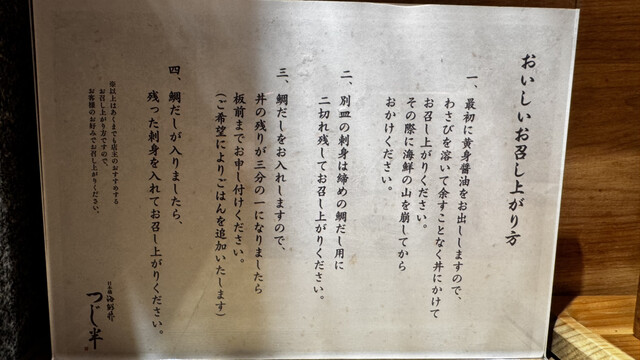 おいしいお召し上がり方
一、最初に黄身醤油をお出ししますので、
わさびを溶いて余すことなく丼にかけて
お召し上がりください。
その際に海鮮の山を崩してから
おかけください。
二、別皿の刺身は締めの鯛だし用に
二切れ残してお召し上がりください。
三、鯛だしをお入れしますので、
丼の残りが三分の一になりましたら
板前までお申し付けください。
(ご希望によりごはんを追加いたします)
四、鯛だしが入りましたら、
残った刺身を入れてお召し上がりください。
※以上はあくまでも店主のおすすめする
お召し上がり方ですので、
お客様のお好みでお召し上がりください。
日本橋海鮮丼
つじ半